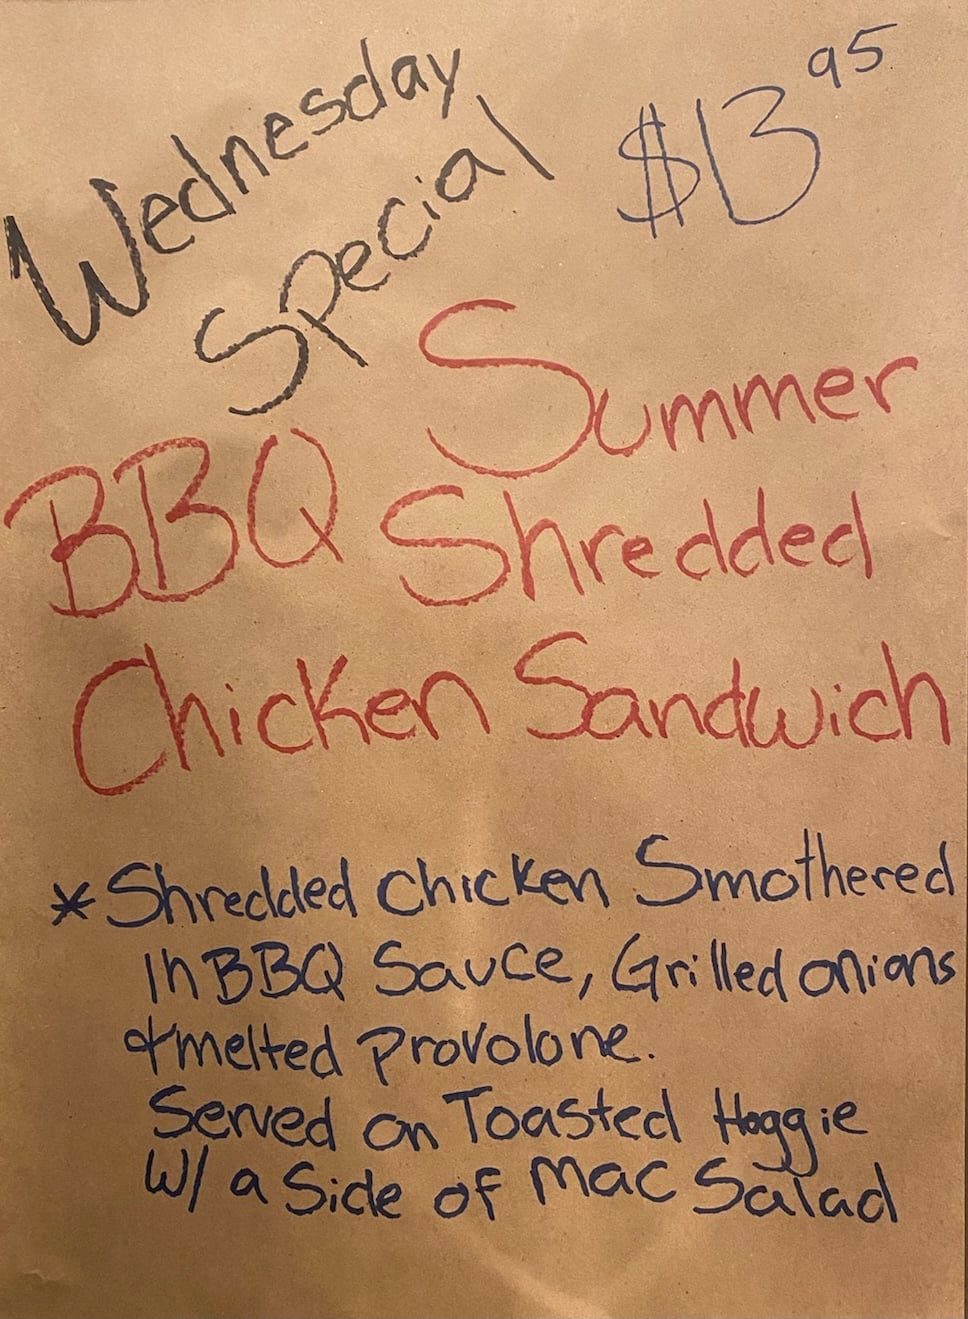 Wednesday
Special
$13 95
Summer
BBQ Shredded
Chicken Sandwich
* Shredded Chicken Smothered
In BBQ Sauce, Grilled onions
& melted Provolone.
Served on Toasted Hoggie
W/ a Side of Mac Salad